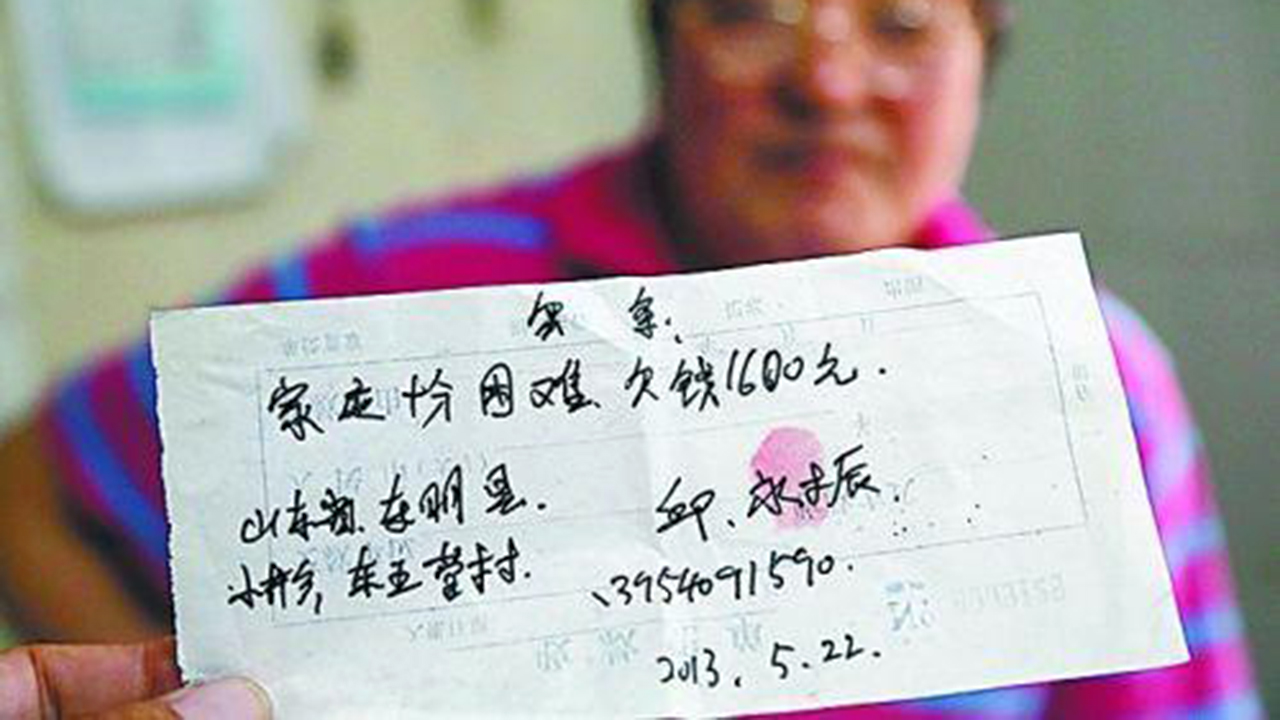 家庭十分困难、欠钱1600元.
山东省、东明县.
小井乡,东王莹村.
邱、永振.
13954091590.
2013.5.22.